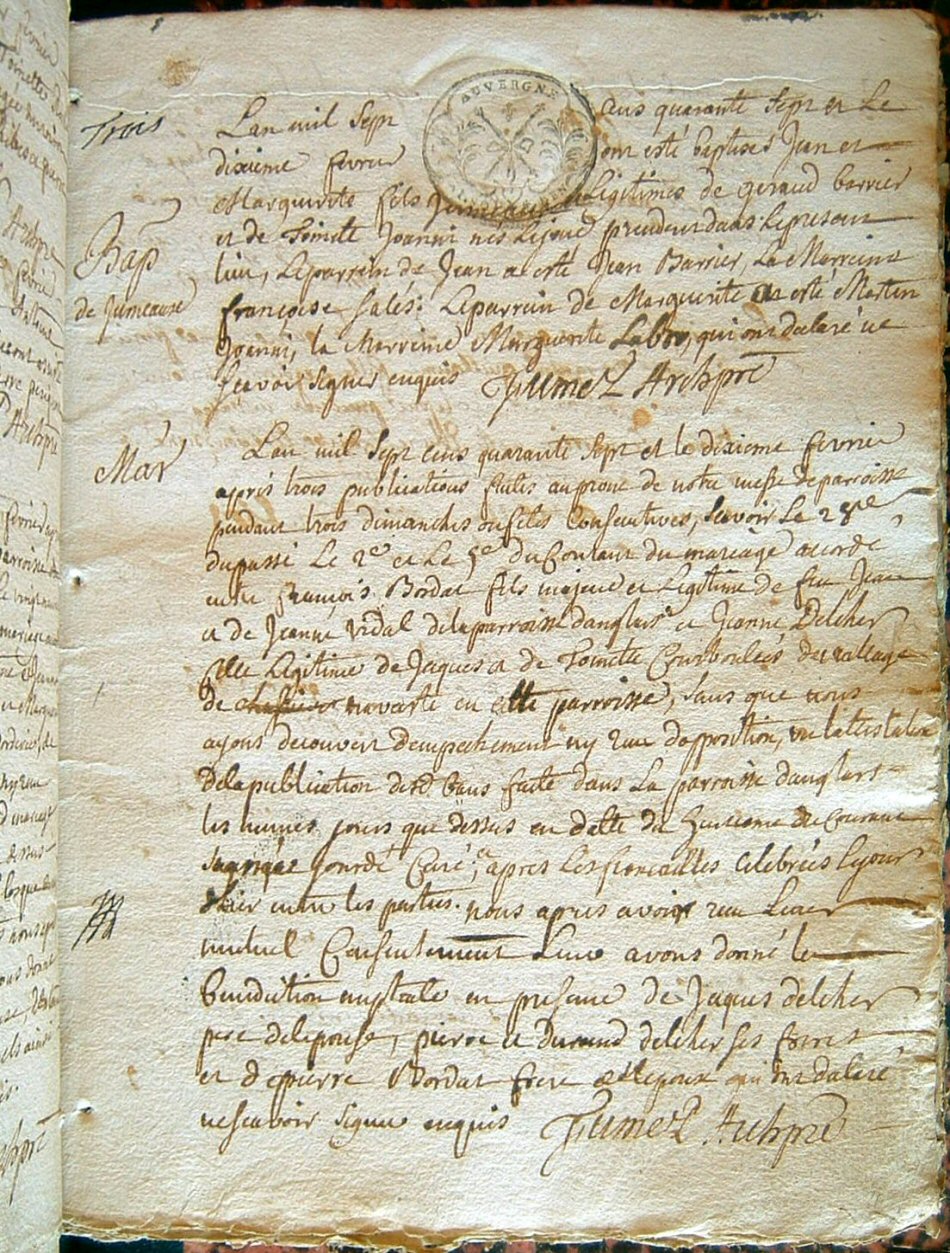 Trois
AUVERGNE
Lan mil Sept Cens quarante Sept et Le
dixieme fevrier ont esté baptises Jean et
Marguerite fils Jumeaux Legitimes de geraud barrier
et de Toinette Joanni nes Lejour precedent dans Lepresent
lieu, Leparrein de Jean a esté Jean Barrier, La Marreine
Bap
de Jumeaux
françoise Salés: Leparrein de Marguerite a esté Martin
Joanni, la Marreine Marguerite Labro, qui ont declaré ne
scavoir signer enquis Jumel Archpre
Mar
Lan mil Sept cens quarante Sept et le dixieme fevrier
aprés trois publications faites au prone de notre messe de parroisse
pendant trois dimanches ou fêtes Consecutives, Scavoir Le
du passé Le 2e et Le 5e du Courant du mariage acordé
entre françois Bordat fils majeur et Legitime de feu Jean
et de Jeanne Vidal dela parroisse danglars et Jeanne Delcher
fille Legitime de Jaques et de Toinette Courboulés du village
de navarte en cette parroisse, Sans que nous
ayons decouvert dempechement ny reçu dopposition, vu lattestation
dela publication desd bans faite dans La parroisse danglars
les mêmes jours que dessus en datte du huitieme du Courant
gourdé Curé, apres Les fiancailles Celebrées lejour
dhier entre les parties. nous apres avoir reçu Leur
mutuel Consentement Leur avons donné la
benediction nuptiale en presence de Jaques delcher
pere de lepouse, pierre et durand delcher ses freres
et de pierre Bordat frere de lepoux qui ont declaré
ne scavoir signer enquis Jumel Archpre